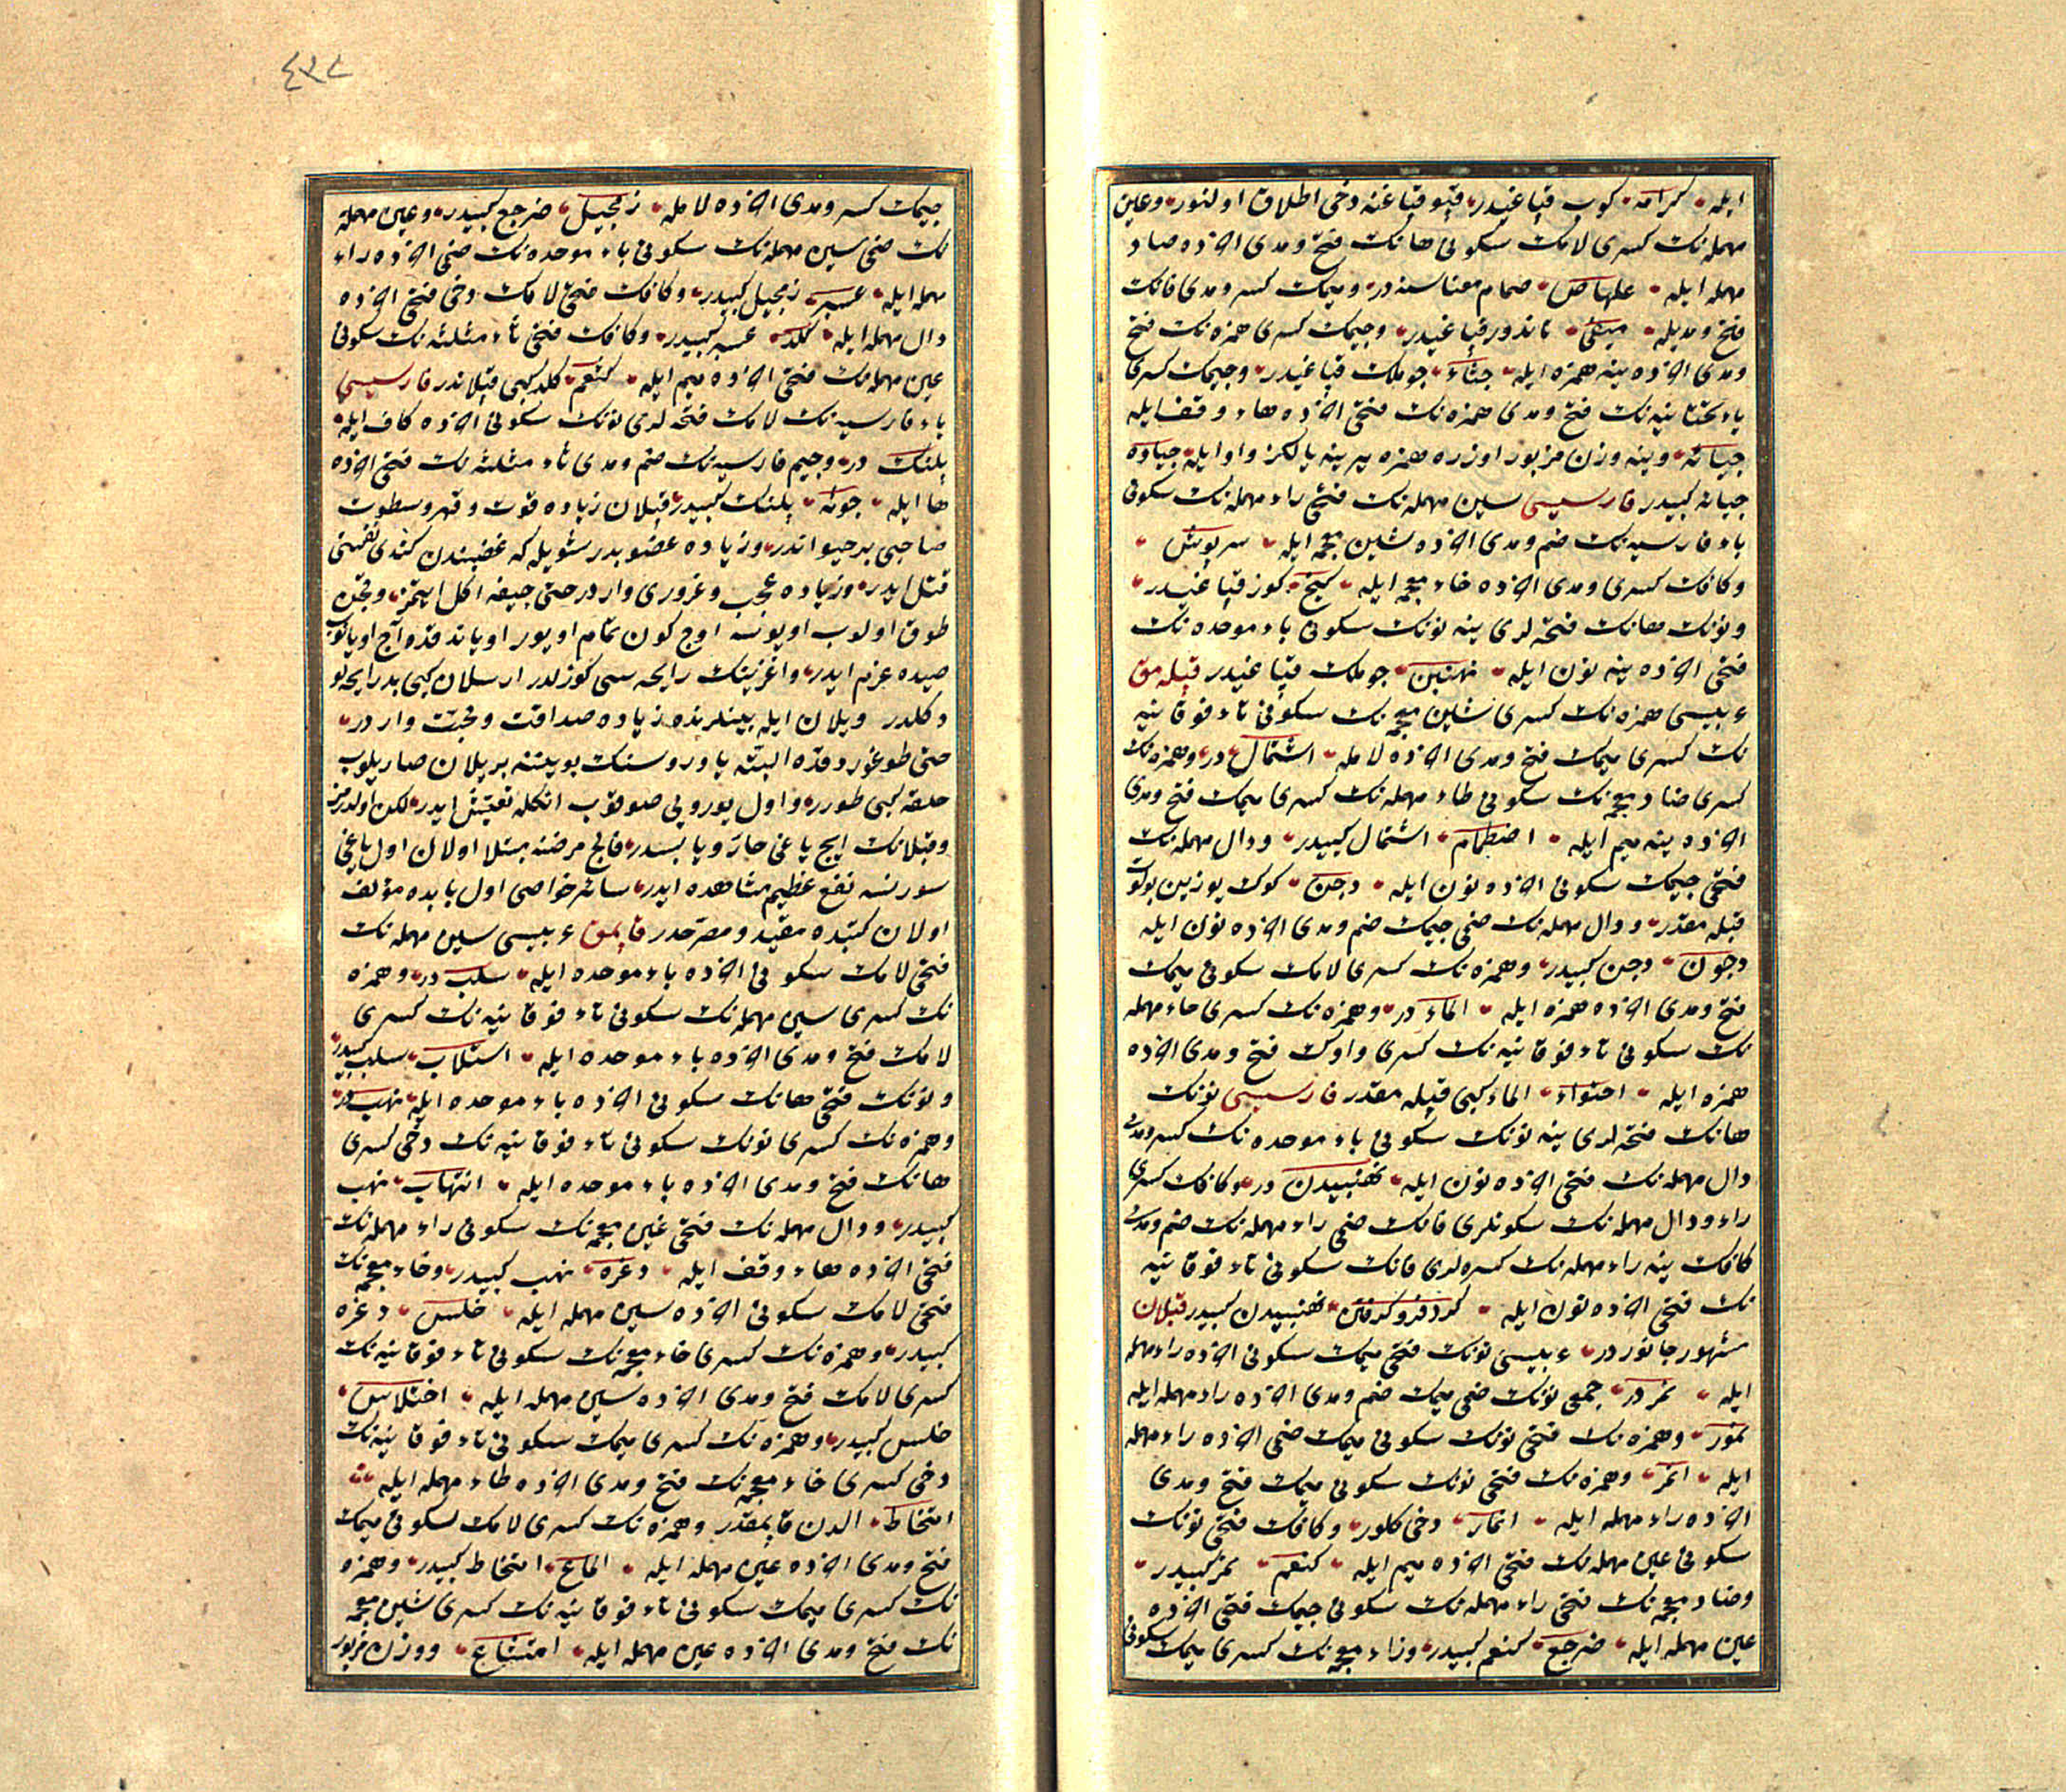 ايله كرامه كوب قپاغيدر قپو قپاغنه دخى اطلاق اولنور وعين
مهمله نك كسرى لامك سكونى هانك فتح ومدى اخرده صاد
مهمله ايله علهاص صمام معناسنه در وميمك كسر ومدى فانك
فتح ومديله ميفى تاندور قپاغيدر وجيمك كسرى همزه نك فتح
ومدى اخرده ينه همزه ايله جئاء جوملك قپاغيدر وجيمك كسرى
ياء تحتانيه نك فتح ومدى همزه نك فتحى اخرده هاء وقف ايله
جيائه وينه وزن مزبور اوزره همزه يرينه يالكز واو ايله جياوه
جيائه كبيدر فارسيسى سين مهمله نك فتحى راء مهمله نك سكونى
باء فارسيه نك ضم ومدى اخرده شين معجمه ايله سرپوش
وكافك كسرى ومدى اخرده خاء معجمه ايله كيخ كوز قپاغيدر
ونونك هانك فتحه لرى ينه نونك سكونى باء موحده نك
فتحى اخرده ينه نون ايله نهنبن جوملك قپاغيدر قپله مق
عربيسى همزه نك كسرى شين معجمه نك سكونى تاء فوقانيه
نك كسرى ميمك فتح ومدى اخرده لامله اشتمال در وهمزه نك
كسرى ضاد معجمه نك سكونى طاء مهمله نك كسرى ميمك فتح ومدى
اخرده ينه ميم ايله اضطمام اشتمال كبيدر ودال مهمله نك
فتحى جيمك سكونى اخرده نون ايله دجن كوك يوزين بولوت
قپله مقدر ودال مهمله نك ضمى جيمك ضم ومدى اخرده نون ايله
دجون دجن كبيدر وهمزه نك كسرى لامك سكونى ميمك
فتح ومدى اخرده همزه ايله الماء در وهمزه نك كسرى حاء مهمله
نك سكونى تاء فوقانيه نك كسرى واوك فتح ومدى اخرده
همزه ايله احتواء الماء كبى قپله مقدر فارسيسى نونك
هانك فتحه لرى ينه نونك سكونى باء موحده نك كسر ومدى
دال مهمله نك فتحى اخرده نون ايله نهنبيدن در وكافك كسرى
راء ودال مهمله نك سكونلرى فانك ضمى راء مهمله نك ضم ومدى
كافك ينه راء مهمله نك كسره لرى فانك سكونى تاء فوقانيه
نك فتحى اخرده نون ايله كرد فرو كرفتن نهنبيدن كبيدر قپلان
مشهور جانوردر عربيسى نونك فتحى ميمك سكونى اخرده راء مهمله
ايله نمر در جمعى نونك ضمى ميمك ضم ومدى اخرده راء مهمله ايله
نمور وهمزه نك فتحى نونك سكونى ميمك ضمى اخرده راء مهمله
ايله انمر وهمزه نك فتحى نونك سكونى ميمك فتح ومدى
اخرده راء مهمله ايله انمار دخى كلور وكافك فتحى نونك
سكونى عين مهمله نك فتحى اخرده ميم ايله كنعم نمر كبيدر
وضاد معجمه نك فتحى راء مهمله نك سكونى جيمك فتحى اخرده
عين مهمله ايله ضرجع كنعم كبيدر وزاء معجمه نك كسرى ميمك سكونى
٤٣٨
جيمك كسر ومدى اخرده لامله زمجيل ضرجع كبيدر وعين مهمله
نك ضمى سين مهمله نك سكونى باء موحده نك ضمى اخرده راء
مهمله ايله عسبر زمجيل كبيدر وكافك فتحى لامك دخى فتحى اخرده
دال مهمله ايله كلد عسبر كبيدر وكافك فتحى ثاء مثلثه نك سكونى
عين مهمله نك فتحى اخرده ميم ايله كثعم كلد كبى قپلاندر فارسيسى
باء فارسيه نك لامك فتحه لرى نونك سكونى اخرده كاف ايله
پلنك در وجيم فارسيه نك ضم ومدى ثاء مثلثه نك فتحى اخرده
ها ايله چوثه پلنك كبيدر قپلان زياده قوت وقهر وسطوت
صاحبى بر حيواندر وزياده عضوبدر شويله كه غضبندن كندى نفسنى
قتل ايدر وزياده عجب وغرورى واردر حتى جيفه اكل ايتمز وقچن
طوق اولوب اويوسه اوج كون تمام اويور اوياندقده آج اويانوب
صيده عزم ايدر واغزينك رايحه سى كوزلدر ارسلان كبى بد رايحه لو
دكلدر ويلان ايله بينلرنده زياده صداقت ومحبت واردر
حتى طوغوردقده البته ياوروسنك بوينته بر يلان صاريلوب
حلقه كبى طورر واول يوروبى صوقوب انكله تعيش ايدر لكن اولدرمز
وقپلانك ايچ ياغى حار ويابسدر فالج مرضنه مبتلا اولان اول ياغى
سورنسه نفع عظيم مشاهده ايدر سائر خواصى اول بابده مؤلف
اولان كتبده مقيد ومصرحدر قاپمق عربيسى سين مهمله نك
فتحى لامك سكونى اخرده باء موحده ايله سلب در وهمزه
نك كسرى سين مهمله نك سكونى تاء فوقانيه نك كسرى
لامك فتح ومدى اخرده باء موحده ايله استلاب سلب كبيدر
ونونك فتحى هانك سكونى اخرده باء موحده ايله نهب در
وهمزه نك كسرى نونك سكونى تاء فوقانيه نك دخى كسرى
هانك فتح ومدى اخرده باء موحده ايله انتهاب نهب
كبيدر ودال مهمله نك فتحى غين معجمه نك سكونى راء مهمله نك
فتحى اخرده هاء وقف ايله دغره نهب كبيدر وخاء معجمه نك
فتحى لامك سكونى اخرده سين مهمله ايله خلس دغره
كبيدر وهمزه نك كسرى خاء معجمه نك سكونى تاء فوقانيه نك
كسرى لامك فتح ومدى اخرده سين مهمله ايله اختلاس
خلس كبيدر وهمزه نك كسرى ميمك سكونى تاء فوقانيه نك
دخى كسرى خاء معجمه نك فتح ومدى اخرده طاء مهمله ايله
امتخاط الدن قاپمقدر وهمزه نك كسرى لامك سكونى ميمك
فتح ومدى اخرده عين مهمله ايله الماع امتخاط كبيدر وهمزه
نك كسرى ميمك سكونى تاء فوقانيه نك كسرى شين معجمه
نك فتح ومدى اخرده عين مهمله ايله امتشاع ووزن مزبور